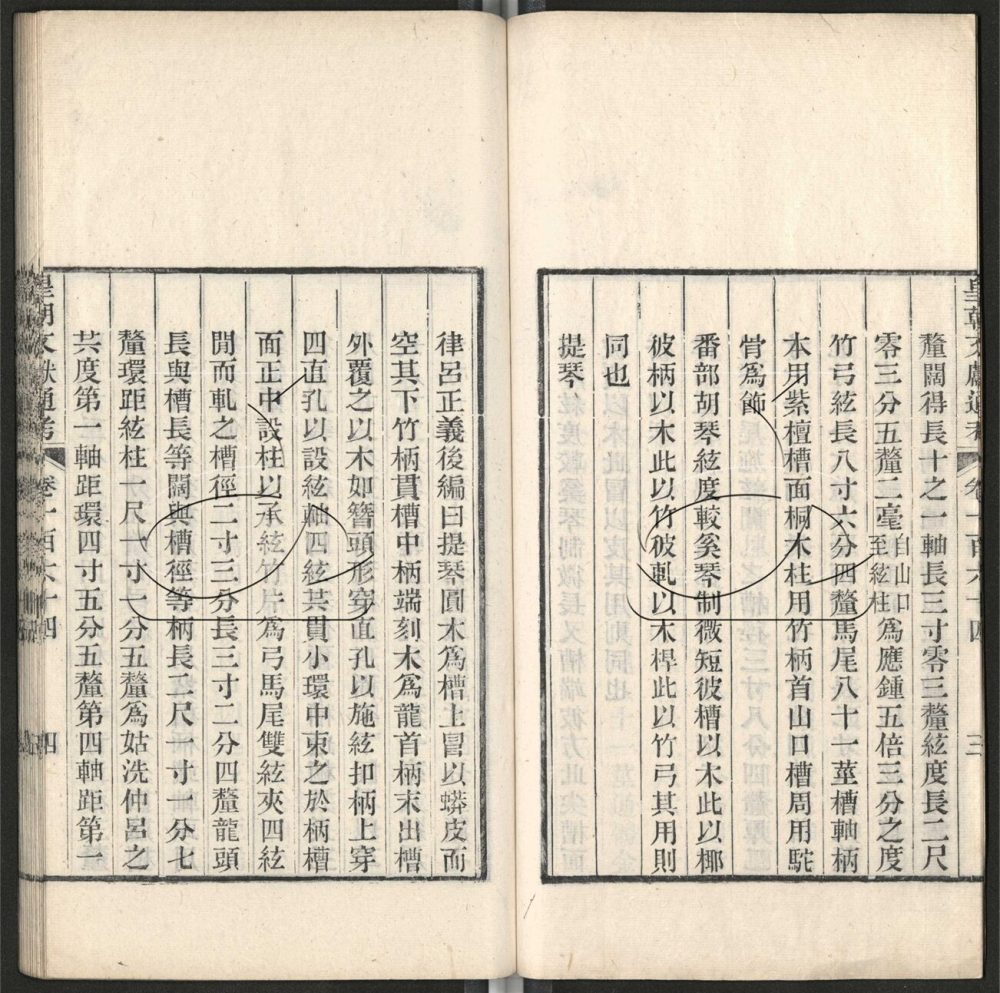 皇朝文獻通考 卷一百六十四 三
釐闊得長十之一軸長三寸零三釐絃度長二尺
零三分五釐二毫自山口至絃柱為應鍾五倍三分之度
竹弓絃長八寸六分四釐馬尾八十一莖槽軸柄
本用紫檀槽面桐木柱用竹柄首山口槽周用駝
骨為飾
番部胡琴絃度較奚琴制微短彼槽以木此以椰
彼柄以木此以竹彼軋以木桿此以竹弓其用則
同也
提琴
律呂正義後編曰提琴圓木為槽上冒以蟒皮而
空其下竹柄貫槽中柄端刻木為龍首柄末出槽
外覆之以木如簪頭形穿直孔以施絃扣柄上穿
四直孔以設絃軸四絃共貫小環中束之於柄槽
面正中設柱以承絃竹片為弓馬尾雙絃夾四絃
閒而軋之槽徑二寸三分長三寸二分四釐龍頭
長與槽長等闊與槽徑等柄長二尺一寸一分七
釐環距絃柱一尺一寸一分五釐為姑洗仲呂之
共度第一軸距環四寸五分五釐第四軸距第一
皇朝文獻通考 卷一百六十四 四